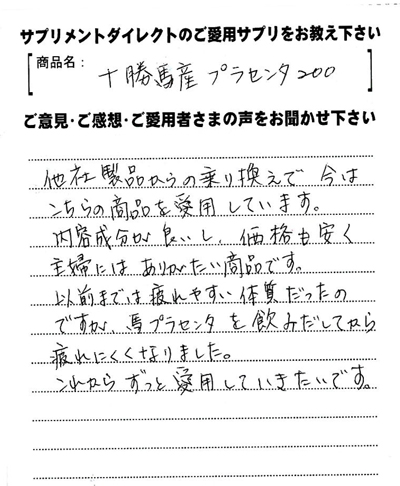 サプリメントダイレクトのご愛用サプリをお教え下さい
商品名： 十勝馬産プラセンタ200
ご意見・ご感想・ご愛用者さまの声をお聞かせ下さい
他社製品からの乗り換えで 今は
こちらの商品を愛用しています。
内容成分が良いし、価格も安く
主婦には ありがたい商品です。
以前までは疲れやすい体質だったの
ですが、馬プラセンタを飲みだしてから
疲れにくくなりました。
これから ずっと愛用していきたいです。